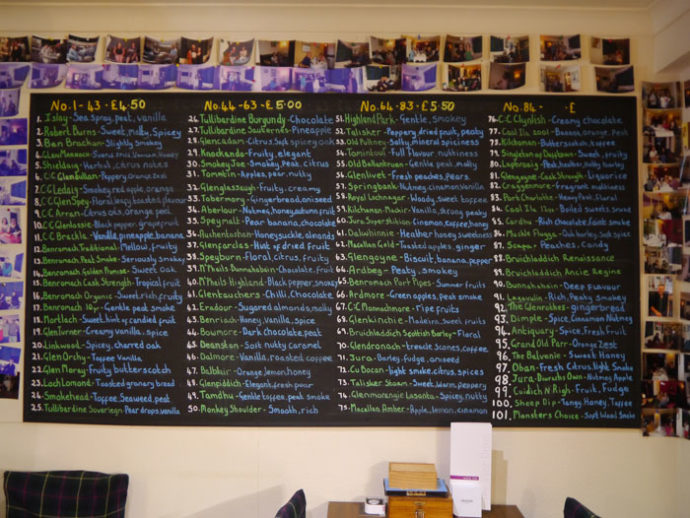 No.1-43-£4.50
1. Islay-Sea spray, peat, vanilla
2. Robert Burns-Sweet, malty, Spicey
3. Ben Brachan-Slightly Smokey
5. Sheildaig-
6. C.C Genbulton-Peppery, Orange, Oak
7. C.C Ledaig-Smokey, red apple, orange
8. C.C Glen Spey-Floral, leafy, toasted, flavour
9. C.C Arran-Citrus, oak, orange, peat
10. C.C Glenlossie-Black pepper, grapefruit
11. C.C Brackla-Vanilla, pineapple, banana
12. Benromach Traditional-Mellow, fruity
13. Benromach Peat Smoke-Seriously smokey
14. Benromach Golden Promise-Sweet Oak
15. Benromach Cask Strength-Tropical fruit
16. Benromach Organic-Sweet, rich, fruity
17. Benromach 10y-Gentle peat, smoke
18. Mortlach-Sweet, hint of candied fruit
19. Glen Turner-Creamy vanilla, spice
20. Linkwood-Spicey, charred oak
21. Glen Orchy-Toffee Vanilla
22. Glen Moray-Fruity butterscotch
23. Loch Lomond-Toasted granary bread
24. Smokehead-Toffee, Seaweed, peat
25. Tullibardine Sovereign-Pear drops, vanilla
No.44-63-£5.00
26. Tullibardine Burgundy-Chocolate
27. Tullibardine Sauternes-Pineapple
28. Glencadam-Citrus, Soft, spicey oak
29. Knockando-Fruity, elegant
30. Smokey Joe-Smokey, peat, citrus
31. Tommtin-Apples, pear, nutty
32. Glenglassaugh-Fruity, creamy
33. Tobermory-Gingerbread, aniseed
34. Aberlour-Nutmeg, honey, autumn fruit
35. Speymalt-Pear, banana, chocolate
36. Auchentoshan-Honeysuckle, almonds
37. Glenfarclas-Hint of dried fruit
38. Speyburn-floral, citrus, fruity
39. M'Phails Bunnahabain-Chocolate, fruit
40. M'Phails Highland-Black pepper, smokey
41. Glentauchers-Chilli, Chocolate
42. Eradour-Sugared almonds, malty
43. Benriach-Honey, Vanilla, spice
44. Bowmore-Dark chocolate, peat
45. Deanston-Soft nutty caramel
46. Dalmore-Vanilla, roasted coffee
47. Balblair-Orange, lemon, honey
48. Glenfiddich-Elegant, fresh, pear
49. Tamdhu-Gentle toffee, peat, smoke
50. Monkey Shoulder-Smooth, rich
No.64-83-£5.50
51. Highland Park-Gentle, smokey
52. Talisker-Peppery, dried fruit, peaty
53. Old Pultney-Salty, mineral spiciness
54. Tomintoul-Full flavour, nuttiness
55. Old Ballantruan-Gentle peat, malty
56. Glenlivet-Fresh peaches, pears
57. Springbank-Nutmeg, cinnamon, Vanilla
58. Royal Lochnagar-Woody, sweet toffee
59. Kilchoman Machir-Vanilla, strong peaty
60. Jura Superstition-Cinnamon, pepper, honey
61. Dalwhinnie-Heather honey sweetness
62. Macallan Gold-Toasted apples, ginger
63. Glengoyne-Biscuit, banana, pepper
64. Ardbeg-Peaty, smokey
65. Benromach Port Pipes-Summer fruits
66. Ardmore-Green apples, peat smoke
67. C.C Mannochmore-Ripe fruits
68. Glenkinchie-Madeira, sweet fruits
69. Bruichladdich Scottish Barley-Floral
70. Glendronach-treacle scones, coffee
71. Jura-Barley, fudge, aniseed
72. Cu Bocan-light smoke, citrus, spices
73. Talisker Storm-Sweet, warm, peppery
74. Glenmorangie Lasanta-Spicey, nutty
75. Macallan Amber-Apple, lemon, cinnamon
No.84- -£
76. C.C Clynlish-Creamy Chocolate
77. Caol Ila 2001-Banana, orange, peat
78. Kilchoman-Butterscotch, toffee
79. Singleton of Dufftown-Sweet, fruity
80. Laphroaig-Peat, heather, nutty, barley
81. Glengoyne Cask Strength-Liquorice
82. Craggenmore-fragrant maltiness
83. Port Charlotte-Heavy Peat, floral
84. Caol Ila 11yr-Boiled sweets, smoke
85. Cardhu-Rich chocolate, fading smoke
86. Muckle Flugga-Oak barley, Soft spice
87. Scapa-Peaches, Candy
88. Bruichladdich Renaissance
89. Bruichladdich Ancie Regime
90. Bunnahabain-Deep flavour
91. Lagavulin-Rich, Peaty, Smokey
92. The Glenrothes-gingerbread
93. Dimple-Spice, Cinnamon, Nutmeg
94. Antiquary-Spice, Fresh Fruit
95. Grand Old Parr-Orange Zest
96. The Balvenie-Sweet Honey
97. Oban-Fresh Citrus, light Smoke
98. Jura-Diurachs Own-Nutmeg, Apple
99. Coidich N Righ-Fruit, Fudge
100. Sheep Dip-Tangy Honey, Toffee
101. Monsters Choice-Soft Wood Smoke